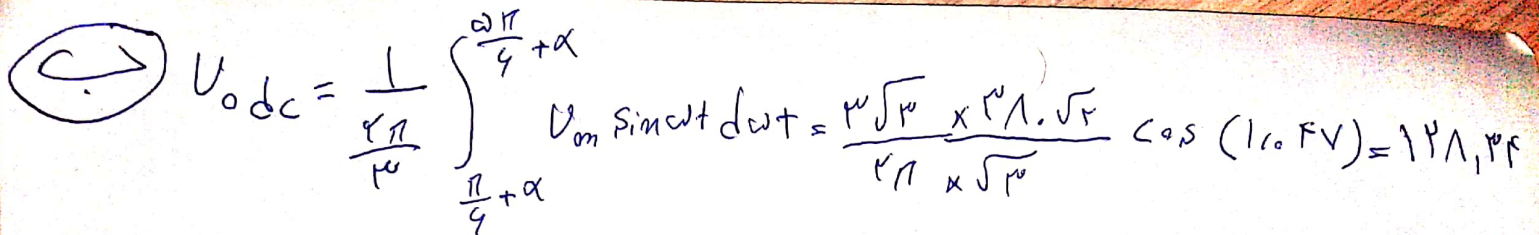 ب V₀dc = ۱/(۲π/۳) ∫_{π/۶ + α}^{۵π/۶ + α} Vm sin ωt dωt = (۳√۳ × ۳۸۰√۲)/(۲π × √۳) cos (۱/۰۴۷) = ۱۲۸,۳۴